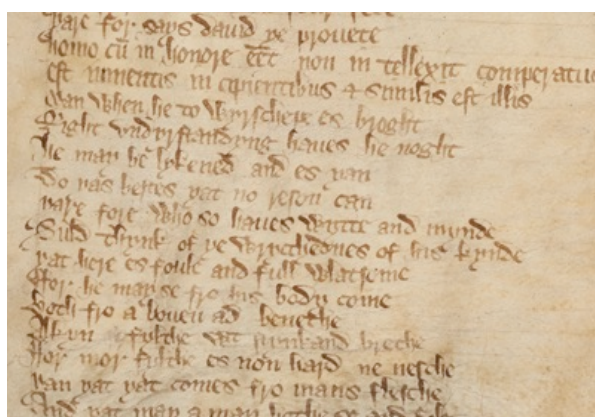 yare for says david ye prouete
homo cū in honore eēt non in tellexit comperatus
est iumentis in cipientibus & similis est illis
Man when he to wyrschepe es broght
Right vndyrstandyng haues he noght
he may be lykened and es yan
To yas bestes yat no reson can
yare fore who so haues wytte and mynde
Suld thynk of ye wrecchednes of his kynde
yat here es foule and full wlatsome
ffor he may se fro his body come
both fro a bouen ad benethe
Alkyn fylthe wit stynkand brethe
ffor mor fylthe es non hard ne nesche
yan yat yat comes fro mans flesche
And yat may a man